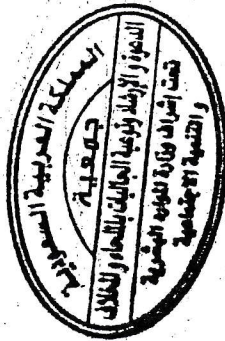 المملكة العربية السعودية
جمعية
الدعوة والإرشاد وتوعية الجاليات بالشعاء والجلاف
تحت إشراف وزارة الموارد البشرية
والتنمية الاجتماعية